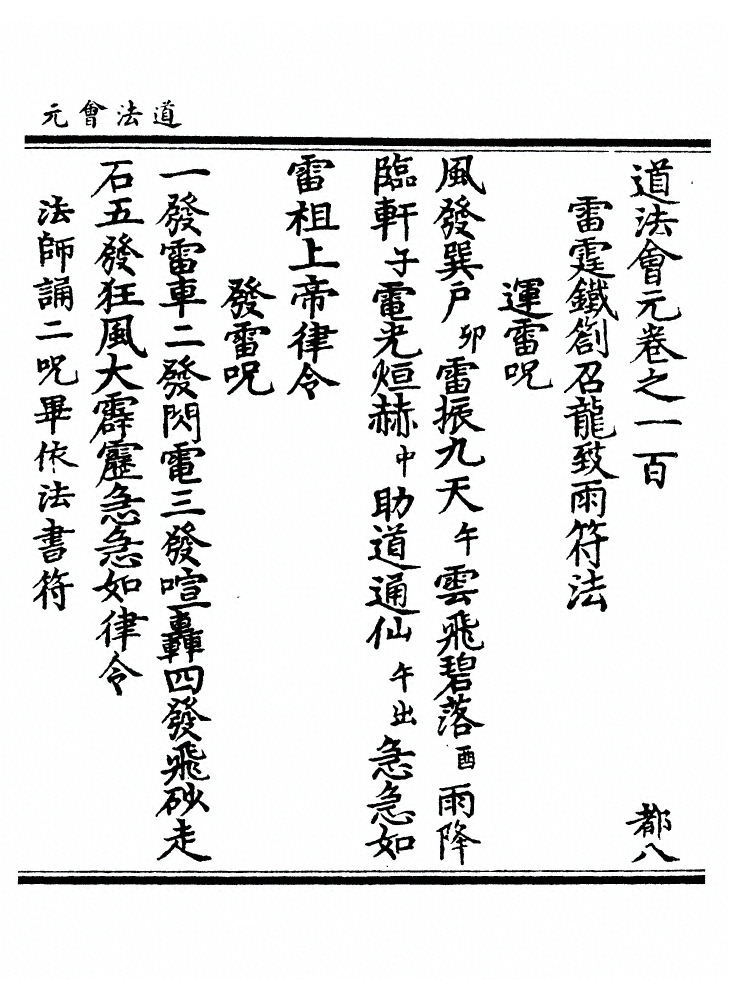 道法會元
道法會元卷之一百　都八
雷霆鐵劄召龍致雨符法
運雷呪
風發巽戶卯雷振九天午雲飛碧落酉雨降
臨軒子電光烜赫中助道通仙午出急急如
雷祖上帝律令
發雷呪
一發雷車二發閃電三發喧轟四發飛砂走
石五發狂風大霹靂急急如律令
法師誦二呪畢依法書符